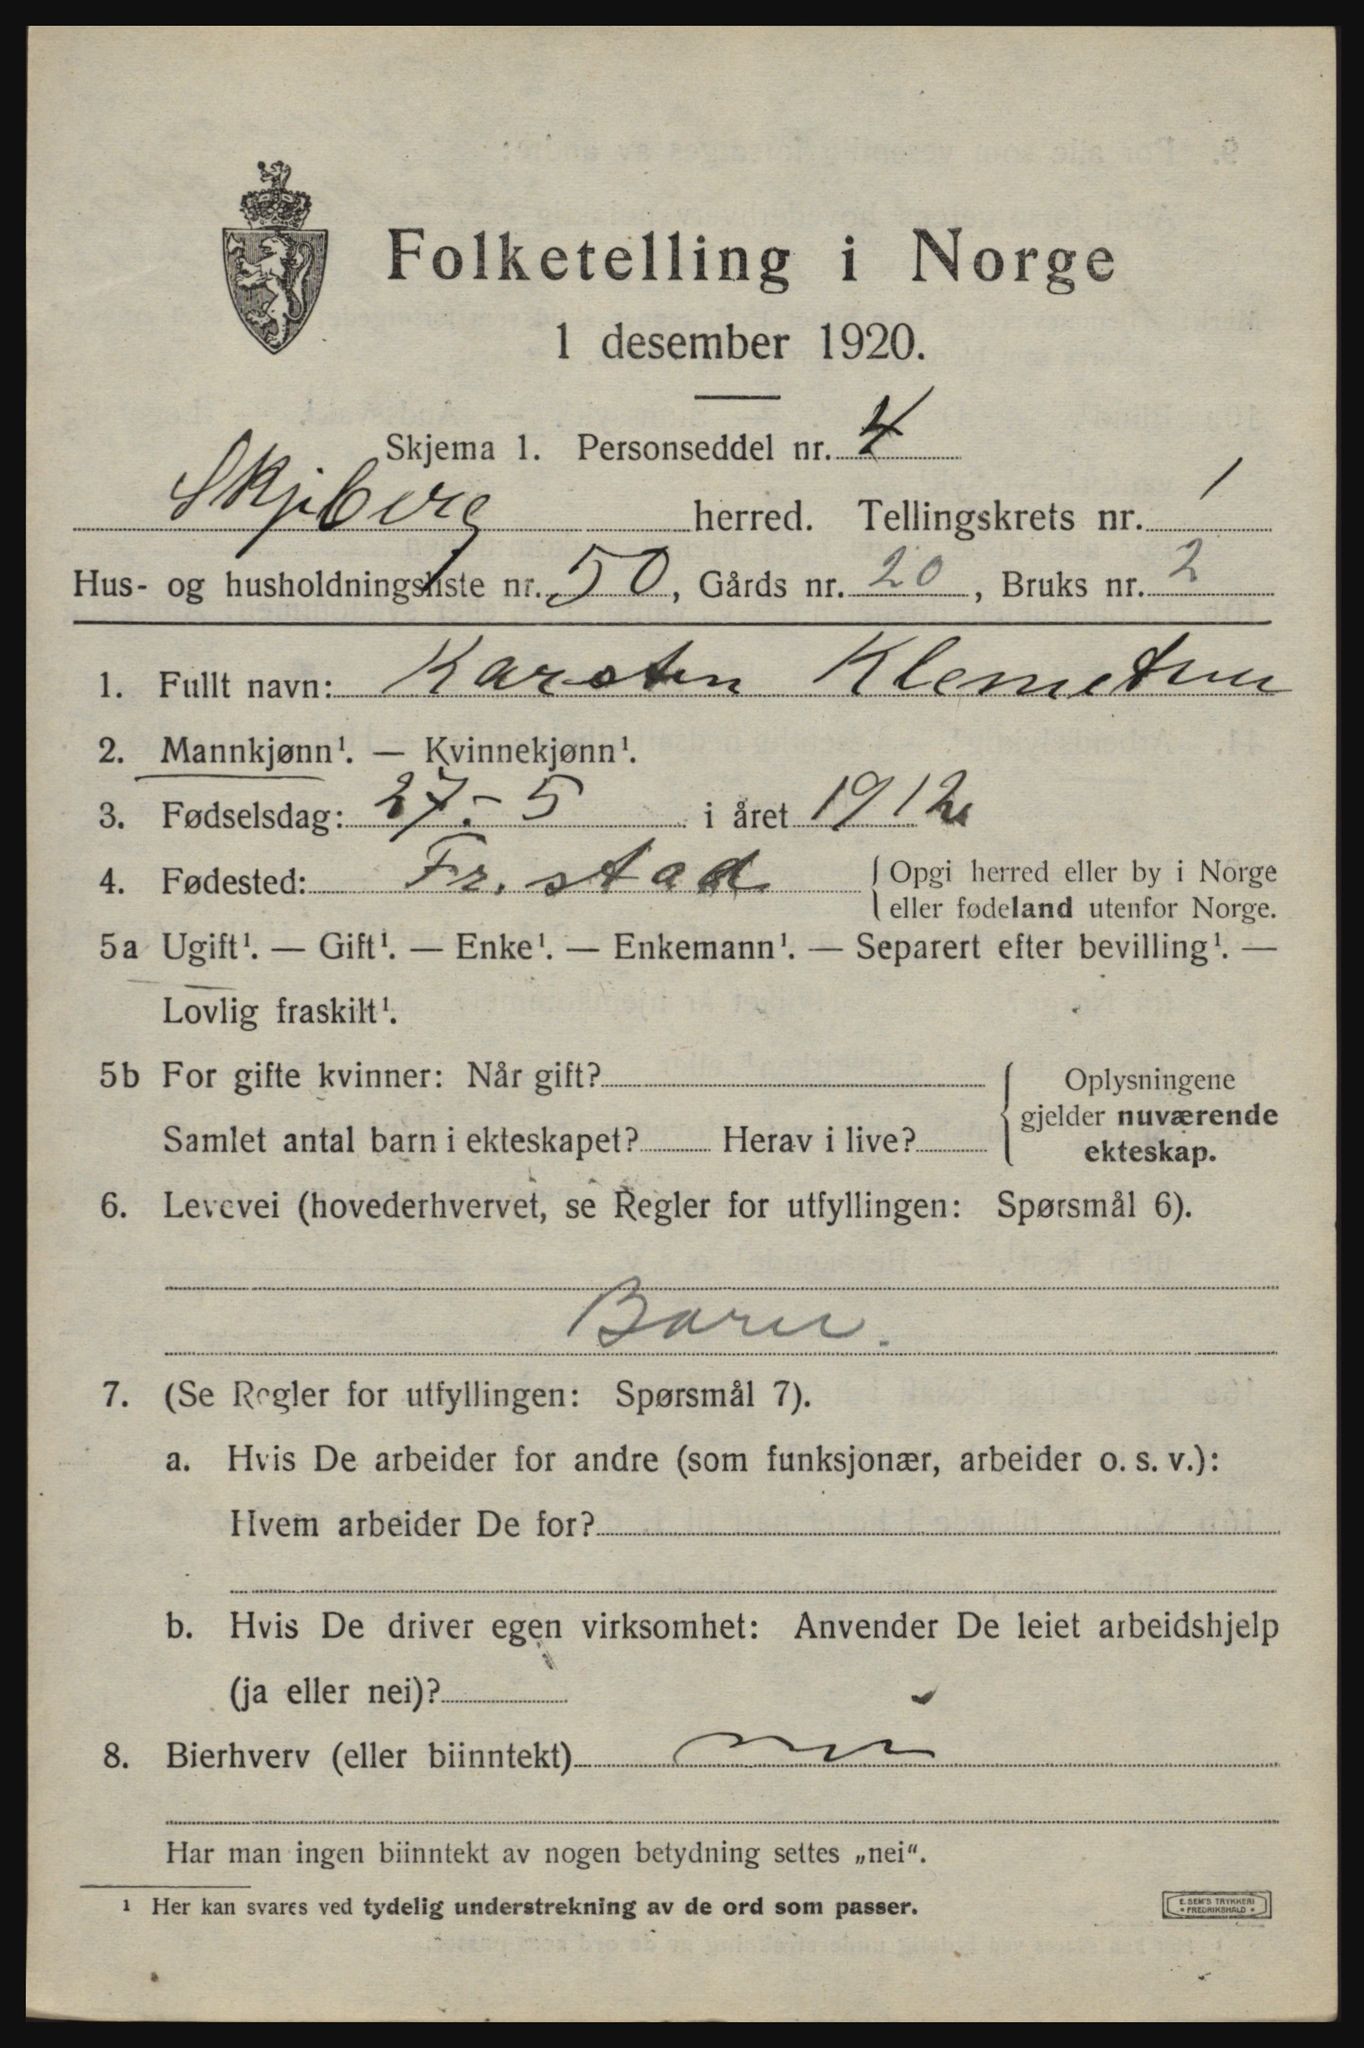 Folketelling i Norge
1 desember 1920.
Skjema 1. Personseddel nr. 4
Skjeberg herred. Tellingskrets nr. 1
Hus- og husholdningsliste nr. 50, Gårds nr. 20, Bruks nr. 2
1. Fullt navn: Karsten Klemetsen
2. Mannkjønn¹. — Kvinnekjønn¹.
3. Fødselsdag: 27.-5 i året 1912
4. Fødested: Fr.stad {Opgi herred eller by i Norge
eller fødeland utenfor Norge.
5a Ugift¹. — Gift¹. — Enke¹. — Enkemann¹. — Separert efter bevilling¹. —
Lovlig fraskilt¹.
5b For gifte kvinner: Når gift? { Oplysningene
gjelder nuværende
Samlet antal barn i ekteskapet? Herav i live? ekteskap.
6. Levevei (hovederhvervet, se Regler for utfyllingen: Spørsmål 6).
Barn.
7. (Se Regler for utfyllingen: Spørsmål 7).
a. Hvis De arbeider for andre (som funksjonær, arbeider o. s. v.):
Hvem arbeider De for?
b. Hvis De driver egen virksomhet: Anvender De leiet arbeidshjelp
(ja eller nei)?
8. Bierhverv (eller biinntekt) nei
Har man ingen biinntekt av nogen betydning settes „nei“.
¹ Her kan svares ved tydelig understrekning av de ord som passer.
E. SEM'S TRYKKERI
* FREDRIKSHALD *